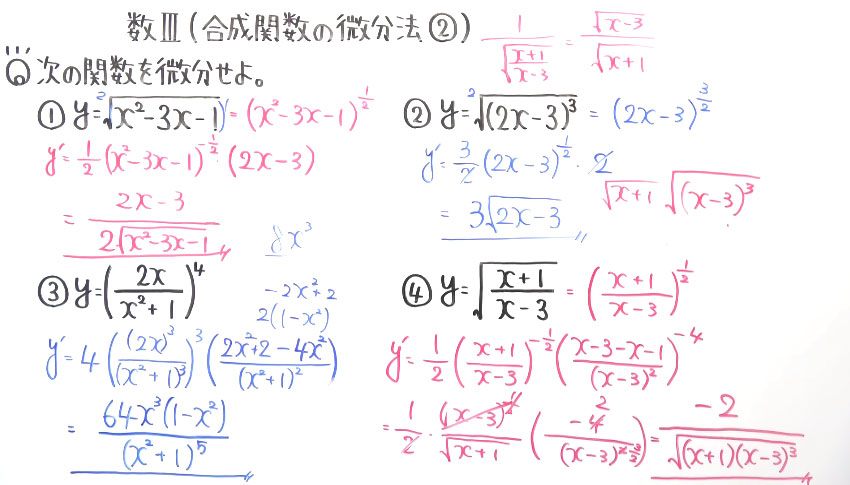 数Ⅲ(合成関数の微分法②)
1/√((x+1)/(x-3)) = √(x-3)/√(x+1)
Q 次の関数を微分せよ。
① y=²√(x²-3x-1) = (x²-3x-1)^(1/2)
y'=1/2(x²-3x-1)^(-1/2)·(2x-3)
= (2x-3)/(2√(x²-3x-1))
8x³
② y=²√((2x-3)³) = (2x-3)^(3/2)
y'=3/2(2x-3)^(1/2)·2
= 3√(2x-3)
√(x+1) √((x-3)³)
③ y=(2x/(x²+1))⁴
-2x²+2
2(1-x²)
y'=4((2x)³/(x²+1)³)³((2x²+2-4x²)/(x²+1)²)
= 64x³(1-x²)/(x²+1)⁵
④ y=√((x+1)/(x-3)) = ((x+1)/(x-3))^(1/2)
y'=1/2((x+1)/(x-3))^(-1/2)((x-3-x-1)/(x-3)²)^-4